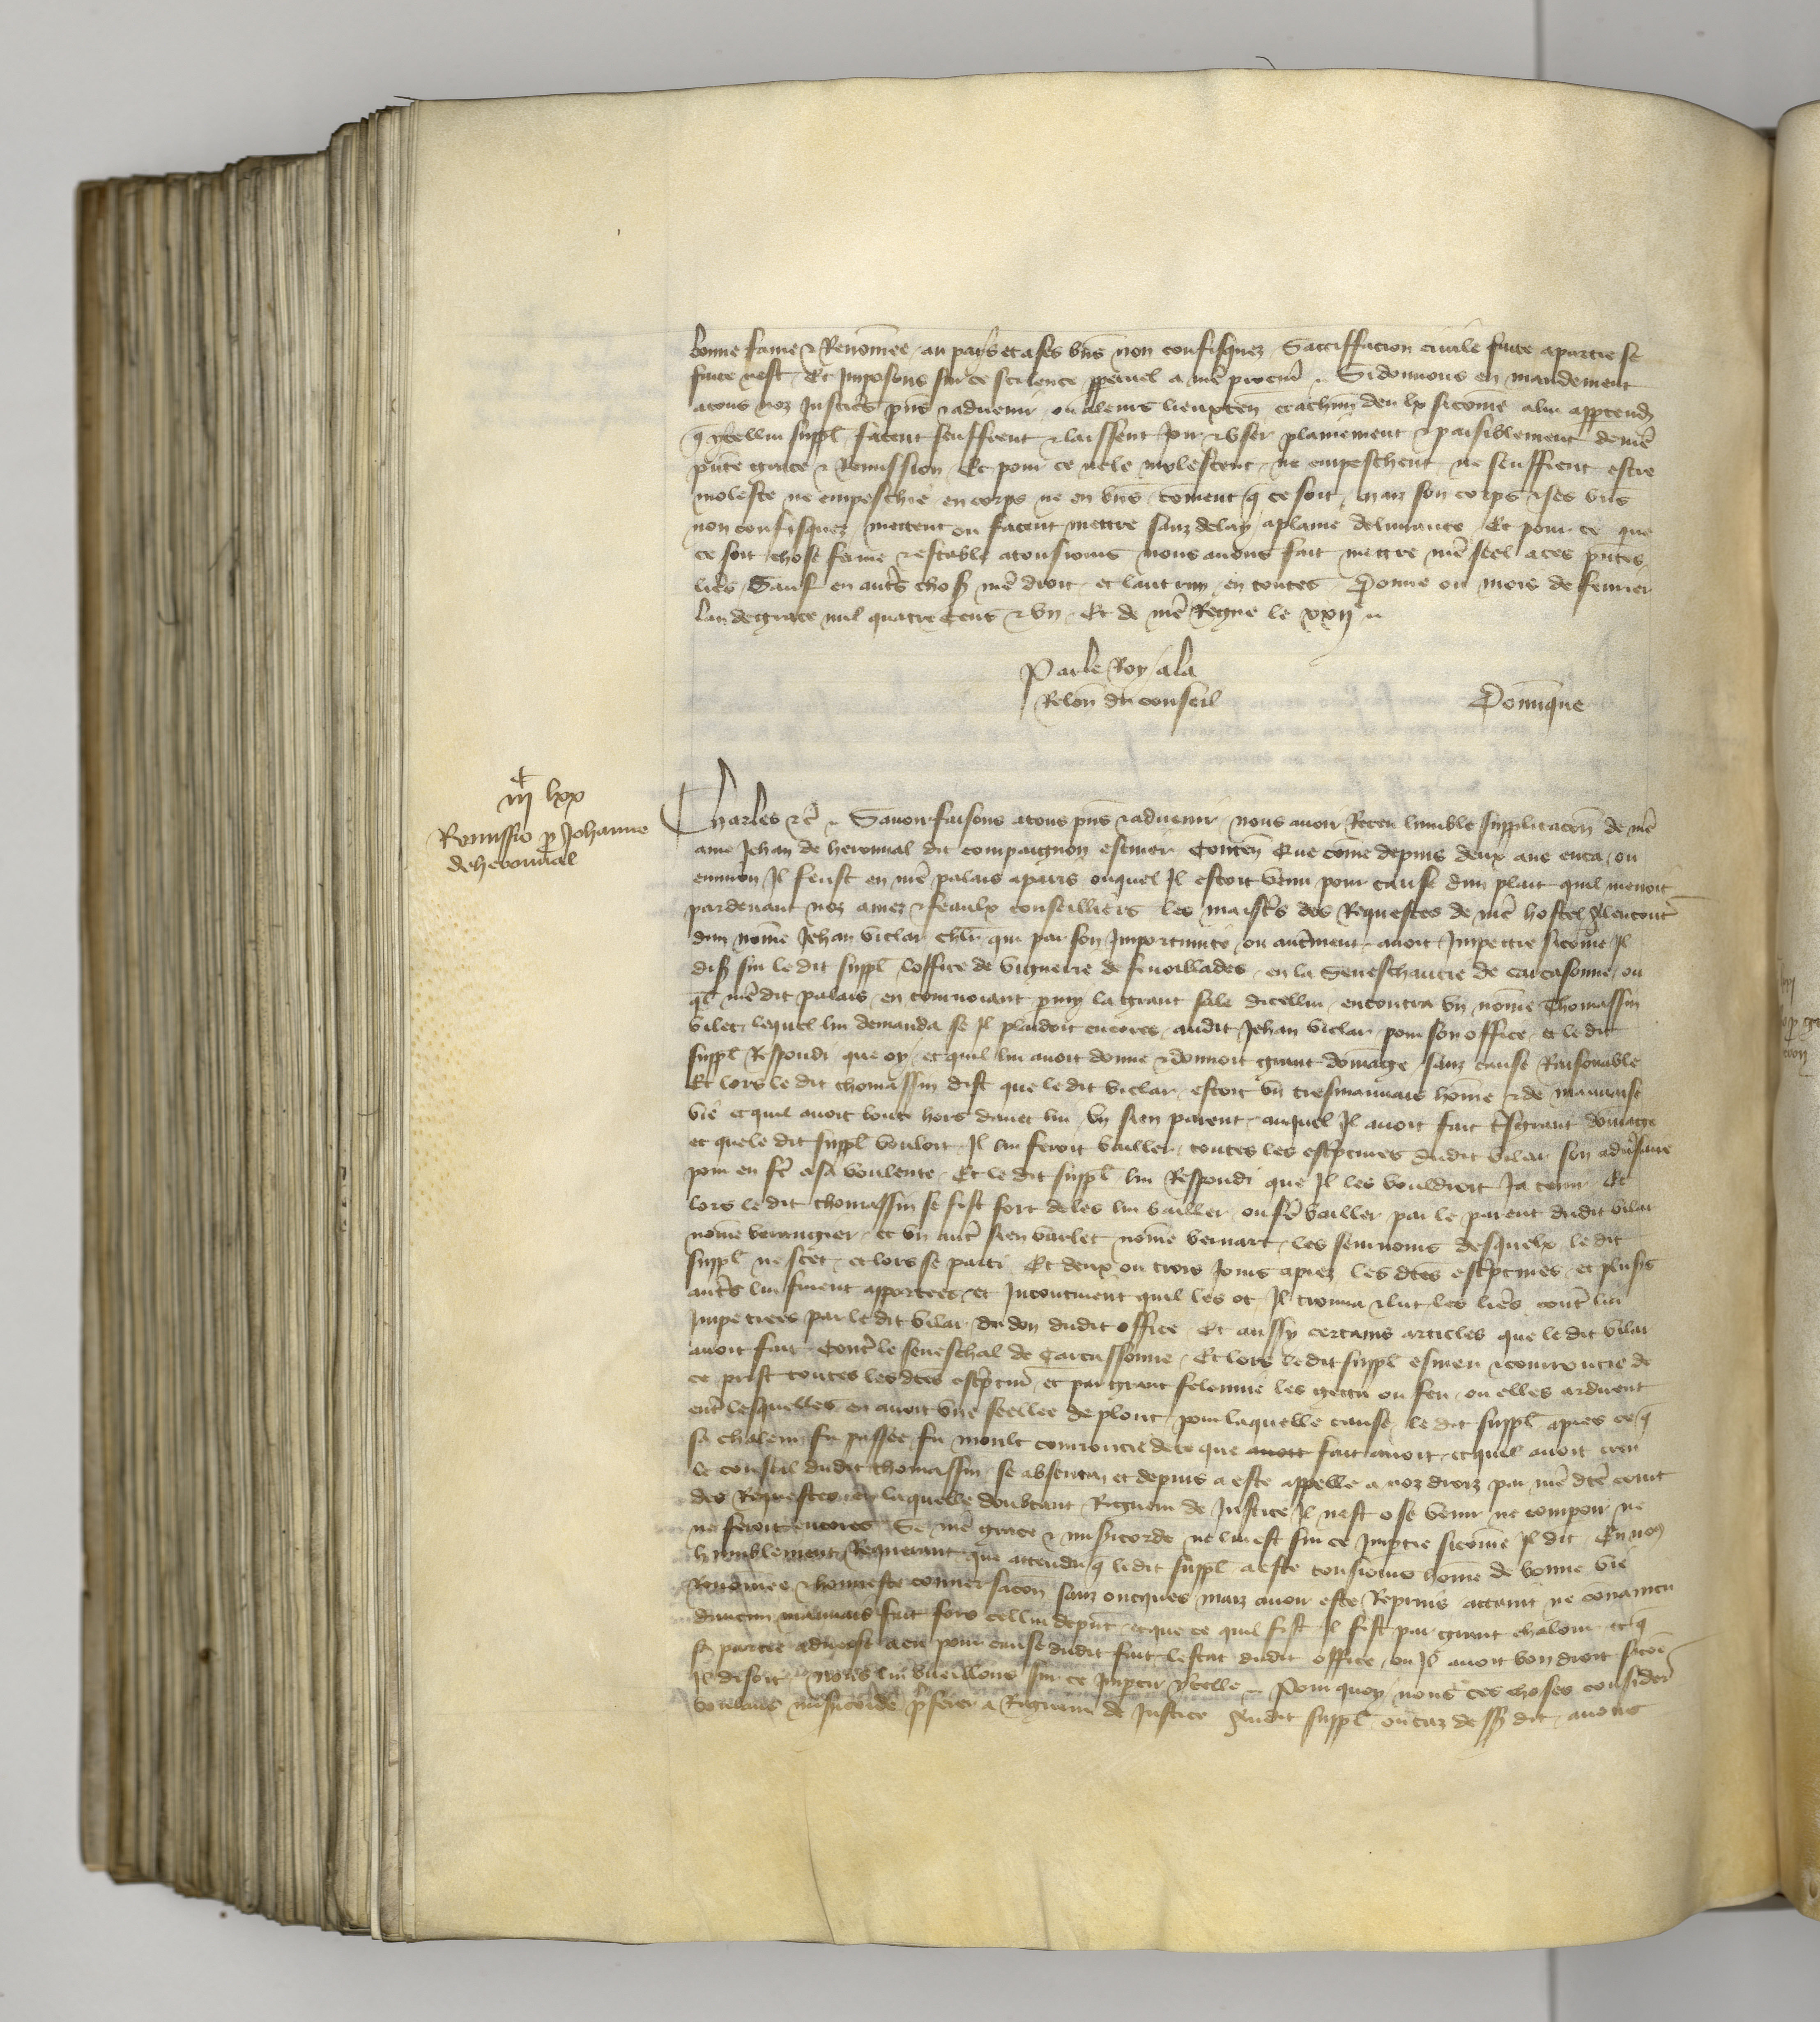 bonne fame & Renomee au pais et a ses bns non confisquez Satiffacion civile faite a partie se
faite nest Et Imposons sur ce scilence ppetuel a nre procur Si donnons en mandement
a tous noz Justicrs pns & advenir ou a leurs lieuxten et a chun deulx sicome a lui apptendr
q ycellui suppl facent seuffrent & laissent Joir & user plainement & paisiblement de nre
pnte grace & Remission Et pour ce ne le molestent ne empeschent ne seuffrent estre
moleste ne empeschie en corps ne en bns coment q ce soit maiz son corps & ses bns
non confisquez mettent ou facent mettre sanz delay a plaine delivrance Et pour ce que
ce soit chose ferme & estable a tousiours nous avons fait mettre nre seel a ces pntes
lres Sauf en autrs choses nre droit et lautruy en toutes Donne ou mois de fevrier
lan de grace mil quatre Cens & un Et de nre Regne le xxij
Par le Roy a la
Relon du conseil
Dominque
iiij lxx
Remissio p Johanne
de heronval
Charles &c Savoir faisons a tous pns & advenir nous avoir Receu lumble supplicacion de nre
ame Jehan de heronval dit compaignon escuier Conten Que come depuis deux ans enca ou
environ Il feust en nre palais a paris ouquel Il estoit venu pour cause dun plait quil menoit
pardevant noz amez & feaulx conseilliers les maistrs des Requestes de nre hostel Alencontr
dun nome Jehan viclar chlr qui par son Importunite ou autrement avoit Impettre sicome Il
dis sur le dit suppl loffice de viguerie de fenoillades en la Seneschaucie de carcasonne ou
ql nre dit palais en tournoiant pmy la grant sale dicellui encontra un nome Thomassin
vilet lequel lui demanda se Il plaidoit encores audit Jehan viclar pour son office et le dit
suppl Respondi que oy et quil lui avoit donne & donnoit grant domage sanz cause Raisonable
Et lors le dit thomassin dist que le dit viclar estoit un tresmauvais home & de mauvaise
vie et quil avoit boute hors davec lui un sien parent auquel Il avoit fait trsgrant domage
et que le dit suppl vouloit Il lui feroit bailler toutes les escriptures dudit vilar son adversaire
pour en fr a sa voulente Et le dit suppl lui Respondi que Il les vouldroit Ja tenir Et
lors le dit thomassin se fist fort de les lui bailler ou fr bailler par le parent dudit vilar
nome berengier et un autr sien varlet nome bernart les seurnoms desquelx le dit
suppl ne scet et lors se parti Et deux ou trois Jours aprez les dtes escriptures et plusrs
autrs lui furent apportees et Incontinent quil les ot Il trouva & lut les lres contr lui
Impetrees par le dit vilar du don dudit office Et aussy certains articles que le dit vilar
avoit fait Contr le seneschal de Carcassonne Et lors le dit suppl esmeu & courroucie de
ce prist toutes les dtes escriptur et par grant felonnie les getta ou feu ou elles ardirent
entr lesquelles en avoit une seellee de plont pour laquelle cause le dit suppl apres ce q
sa chaleur fu passee fu moult courroucie de ce que avoit fait avoit et quil avoit creu
le conseil dudit thomassin se absenta et depuis a este appelle a noz droiz par nre dte court
des Requestes en laquelle doubtant Rigueur de Justice Il nest ose venir ne compoir ne
ne feroit encores Se nre grace & misericorde ne lui est sur ce Imptie sicome Il dit En nous
humblement Requerant que attendu q le dit suppl a este tousiours home de bonne vie
Renomee & honneste conversacon sanz oncques maiz avoir este Repris attaint ne convaincu
daucun mauvais fait fors cellui depnt et que ce quil fist Il fist par grant chaleur et q
sa partie adverse a eu pour cause dudit fait lestat dudit office ou Il avoit bon droit sicoe
Il disoit nous lui vueillons sur ce Imptir ycelle Pour quoy nous ces choses consider
voulans misericorde prferer a Rigueur de Justice Audit suppl ou caz dessus dit avons